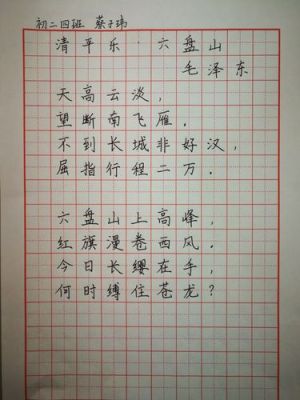 初二四班 蔡子玮
清平乐·六盘山
毛泽东
天高云淡，
望断南飞雁．
不到长城非好汉，
屈指行程二万．
六盘山上高峰，
红旗漫卷西风．
今日长缨在手，
何时缚住苍龙？